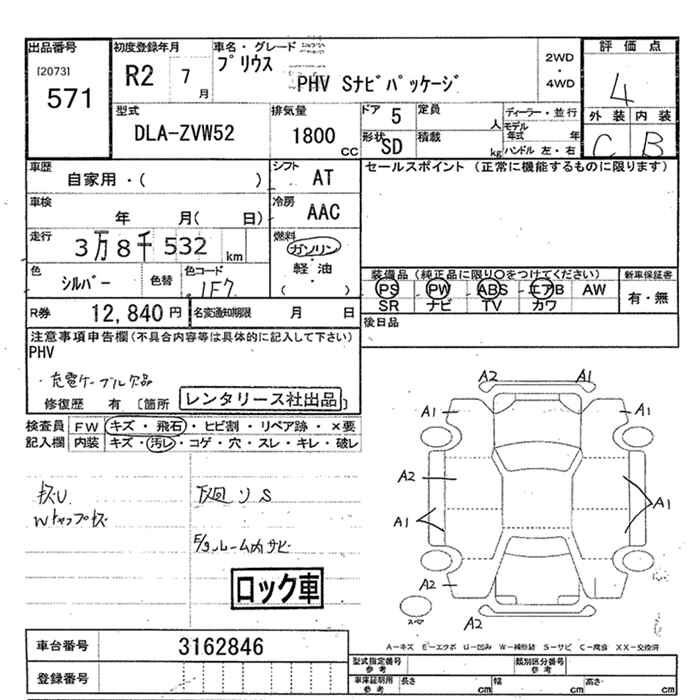 出品番号 初度登録年月 車名・グレード 2WD 評価点
[2073] プリウス ・
571 R2 7月 PHV Sナビパッケージ 4WD 4
型式 排気量 ドア 5 定員 人 ディーラー・並行 外装 内装
DLA-ZVW52 1800 cc 形状 SD 積載 kg モデル年式 年 C B
ハンドル 左・右
車歴 シフト セールスポイント (正常に機能するものに限ります)
自家用・( ) AT
車検 冷房
年 月( 日) AAC
走行 燃料
3万8千532 km ガソリン
色 色替 色コード 軽油 装備品(純正品に限り○をつけてください) 新車保証書
シルバー 1F7 ( ) PS PW ABS エアB AW 有・無
SR ナビ TV カワ
R券 12,840円 名変通知期限 月 日 後日品
注意事項申告欄(不具合内容等は具体的に記入して下さい)
PHV
・充電ケーブル欠品
修復歴 有 [箇所 レンタリース社出品 ]
検査員 FW キズ・飛石・ヒビ割・リペア跡・×要
記入欄 内装 キズ・汚レ・コゲ・穴・スレ・キレ・破レ
A2 A1
A1 A1
A2
A1 A1
A2
A2
スペア
下廻り S
E/gルーム内サビ
ロック車
A-キズ E-エクボ U-凹み W-補修跡 S-サビ C-腐食 XX-交換済
車台番号 3162846
登録番号
型式指定番号 参考 類別区分番号 参考
車庫証明用 参考 長さ cm 幅 cm 高さ cm